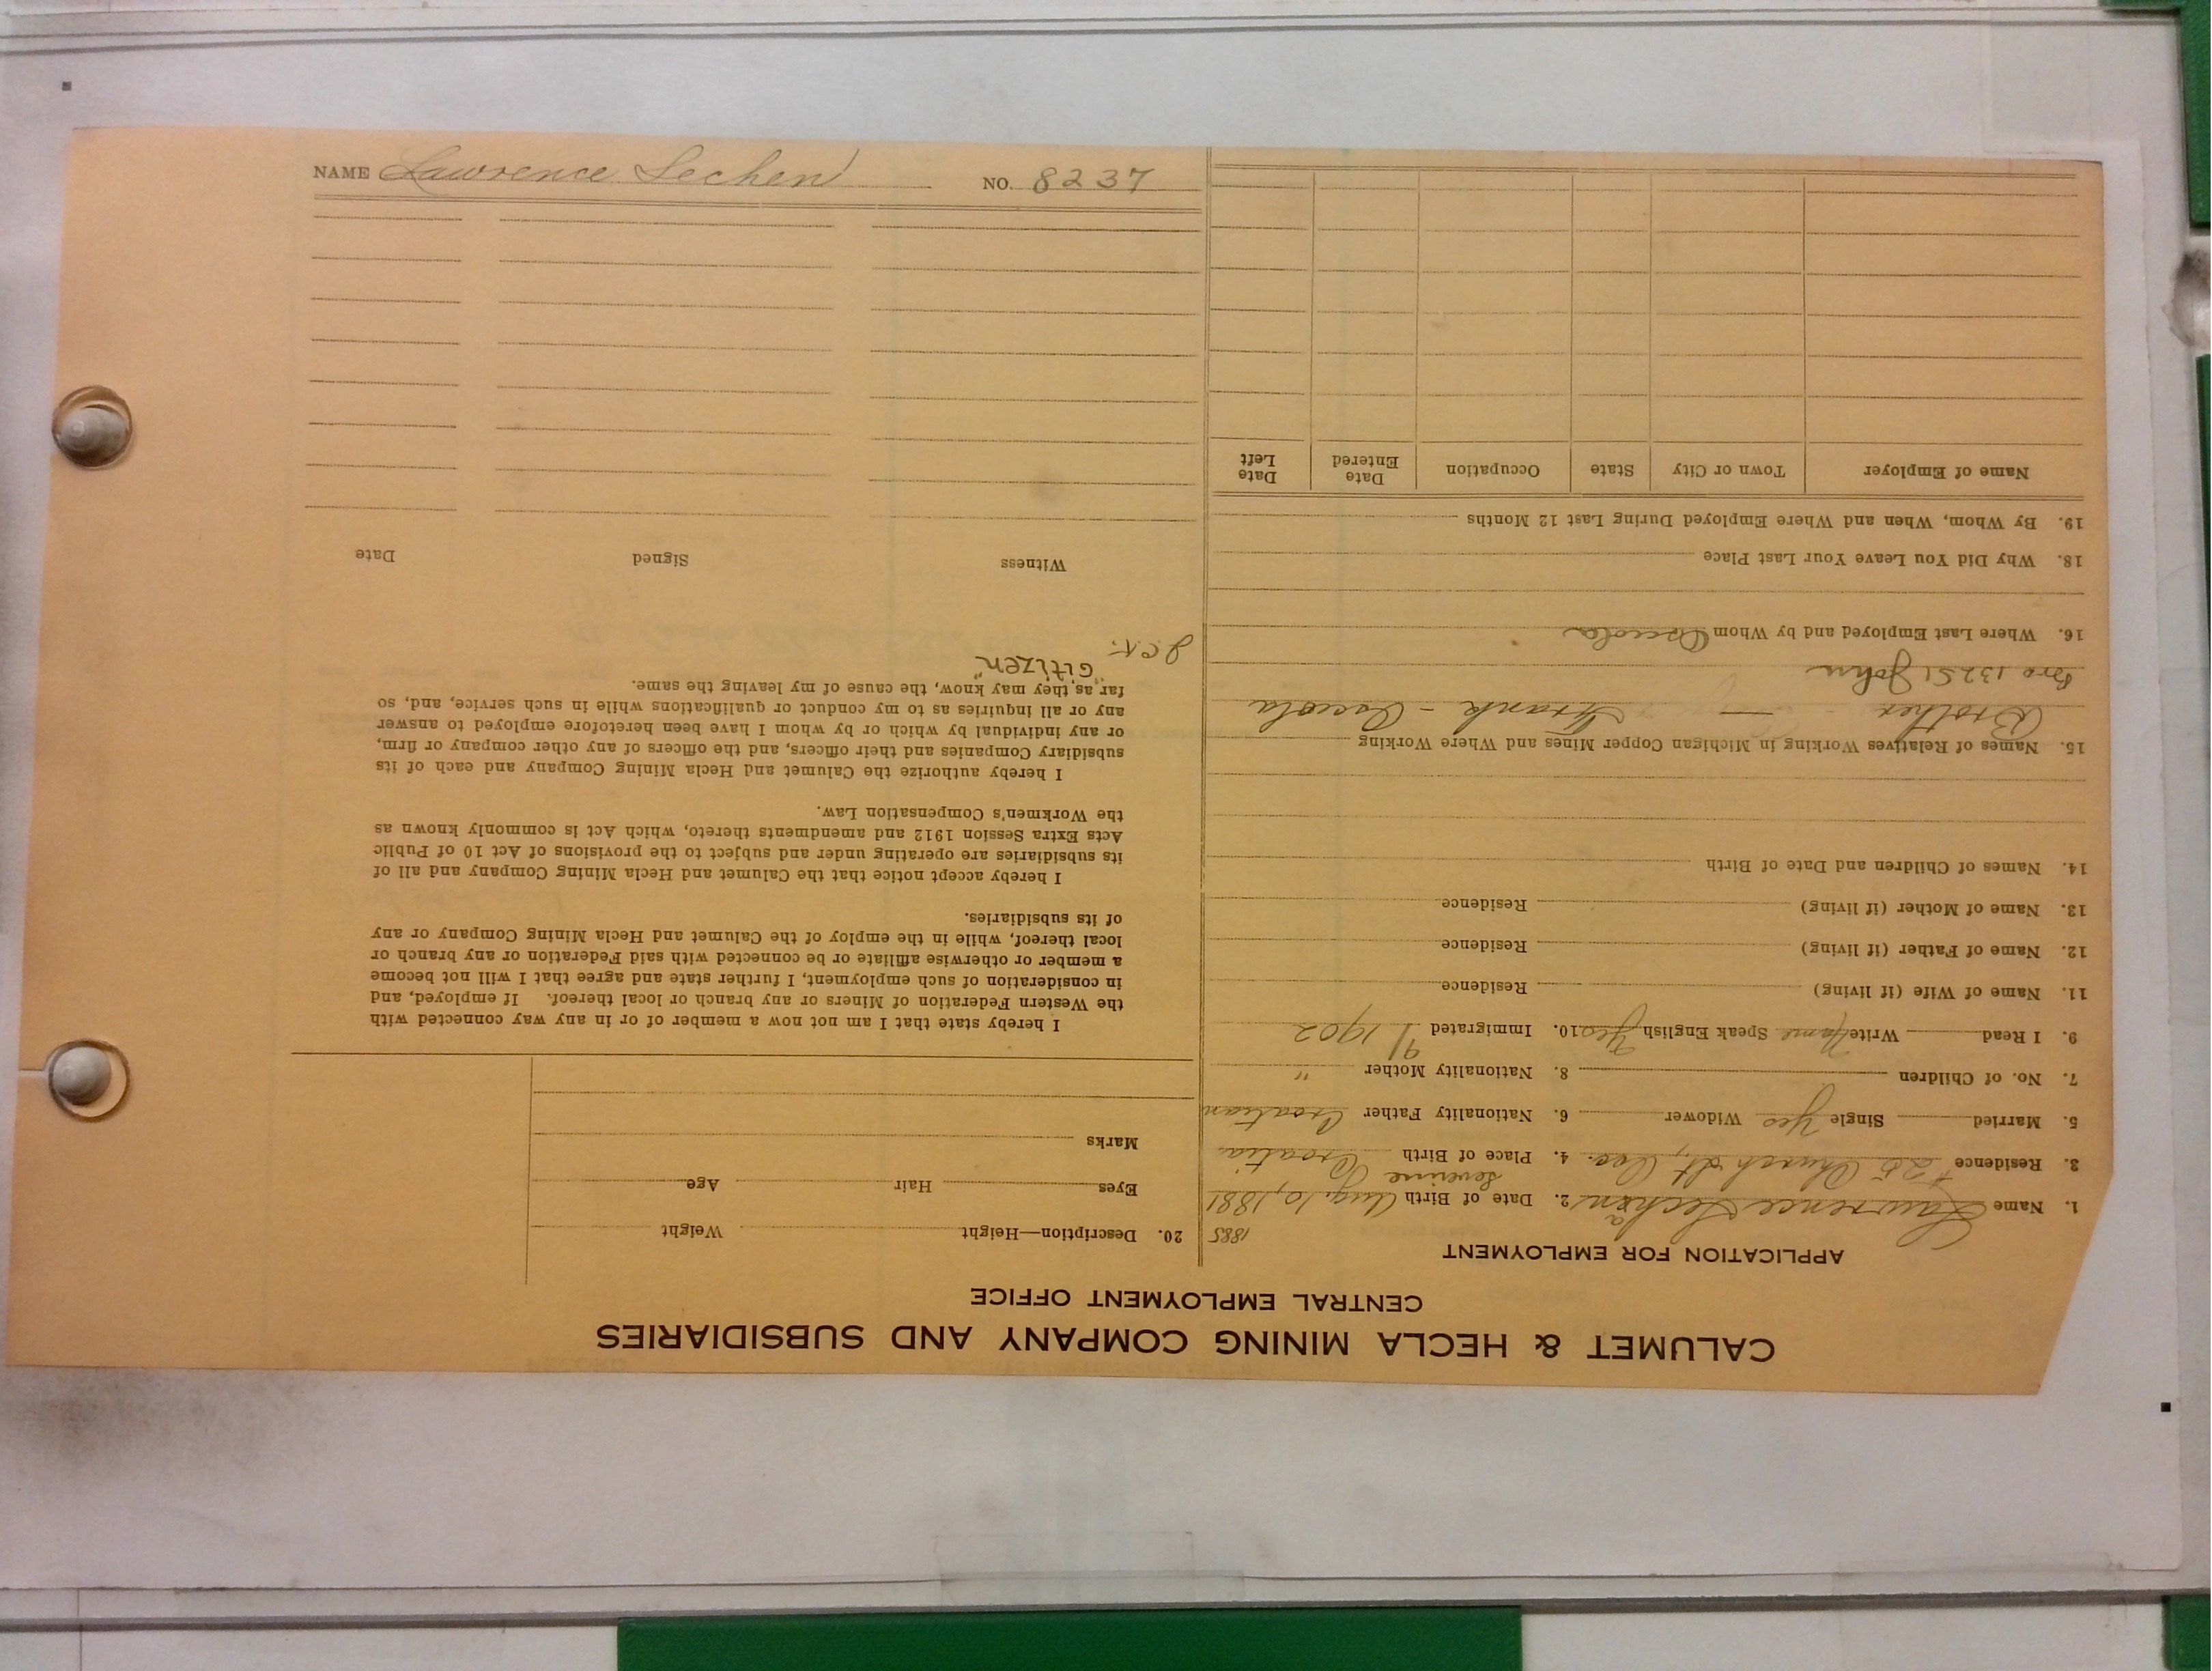 CALUMET & HECLA MINING COMPANY AND SUBSIDIARIES
CENTRAL EMPLOYMENT OFFICE
APPLICATION FOR EMPLOYMENT
1885
1. Name Lawrence Sechen 2. Date of Birth Aug. 10, 1881
a
Severine
3. Residence # 25 Church St., Oss. 4. Place of Birth Croatia
5. Married Single Yes Widower 6. Nationality Father Croatian
7. No. of Children 8. Nationality Mother "
9. I Read Write Name Speak English Yes 10. Immigrated 9/ 1902
11. Name of Wife (if living) Residence
12. Name of Father (if living) Residence
13. Name of Mother (if living) Residence
14. Names of Children and Date of Birth
15. Names of Relatives Working in Michigan Copper Mines and Where Working
Brother — Frank - Osceola
Bro 13251 John
16. Where Last Employed and by Whom Osceola
18. Why Did You Leave Your Last Place
19. By Whom, When and Where Employed During Last 12 Months
Name of Employer Town or City State Occupation Date Entered Date Left
20. Description—Height Weight
Eyes Hair Age
Marks
I hereby state that I am not now a member of or in any way connected with
the Western Federation of Miners or any branch or local thereof. If employed, and
in consideration of such employment, I further state and agree that I will not become
a member or otherwise affiliate or be connected with said Federation or any branch or
local thereof, while in the employ of the Calumet and Hecla Mining Company or any
of its subsidiaries.
I hereby accept notice that the Calumet and Hecla Mining Company and all of
its subsidiaries are operating under and subject to the provisions of Act 10 of Public
Acts Extra Session 1912 and amendments thereto, which Act is commonly known as
the Workmen's Compensation Law.
I hereby authorize the Calumet and Hecla Mining Company and each of its
subsidiary Companies and their officers, and the officers of any other company or firm,
or any individual by which or by whom I have been heretofore employed to answer
any or all inquiries as to my conduct or qualifications while in such service, and, so
far as they may know, the cause of my leaving the same.
"Citizen"
J.C.K.
Witness Signed Date
NAME Lawrence Sechen NO. 8237